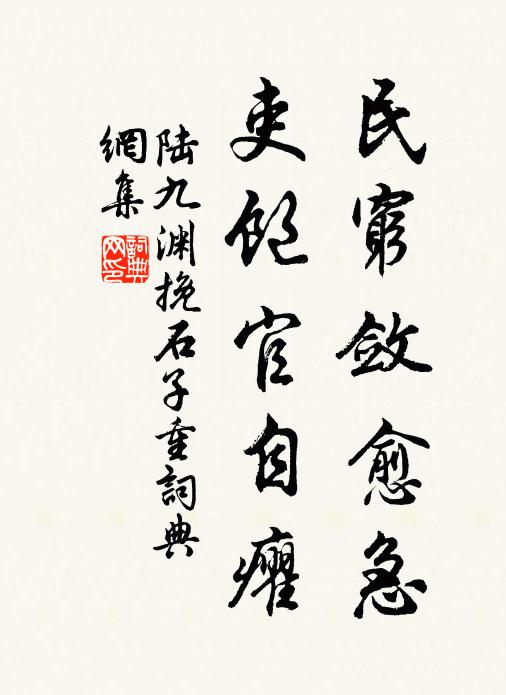 民窮斂愈急
吏飽官自癯
陸九渊挽石子重詞典
網集
詞典
网印